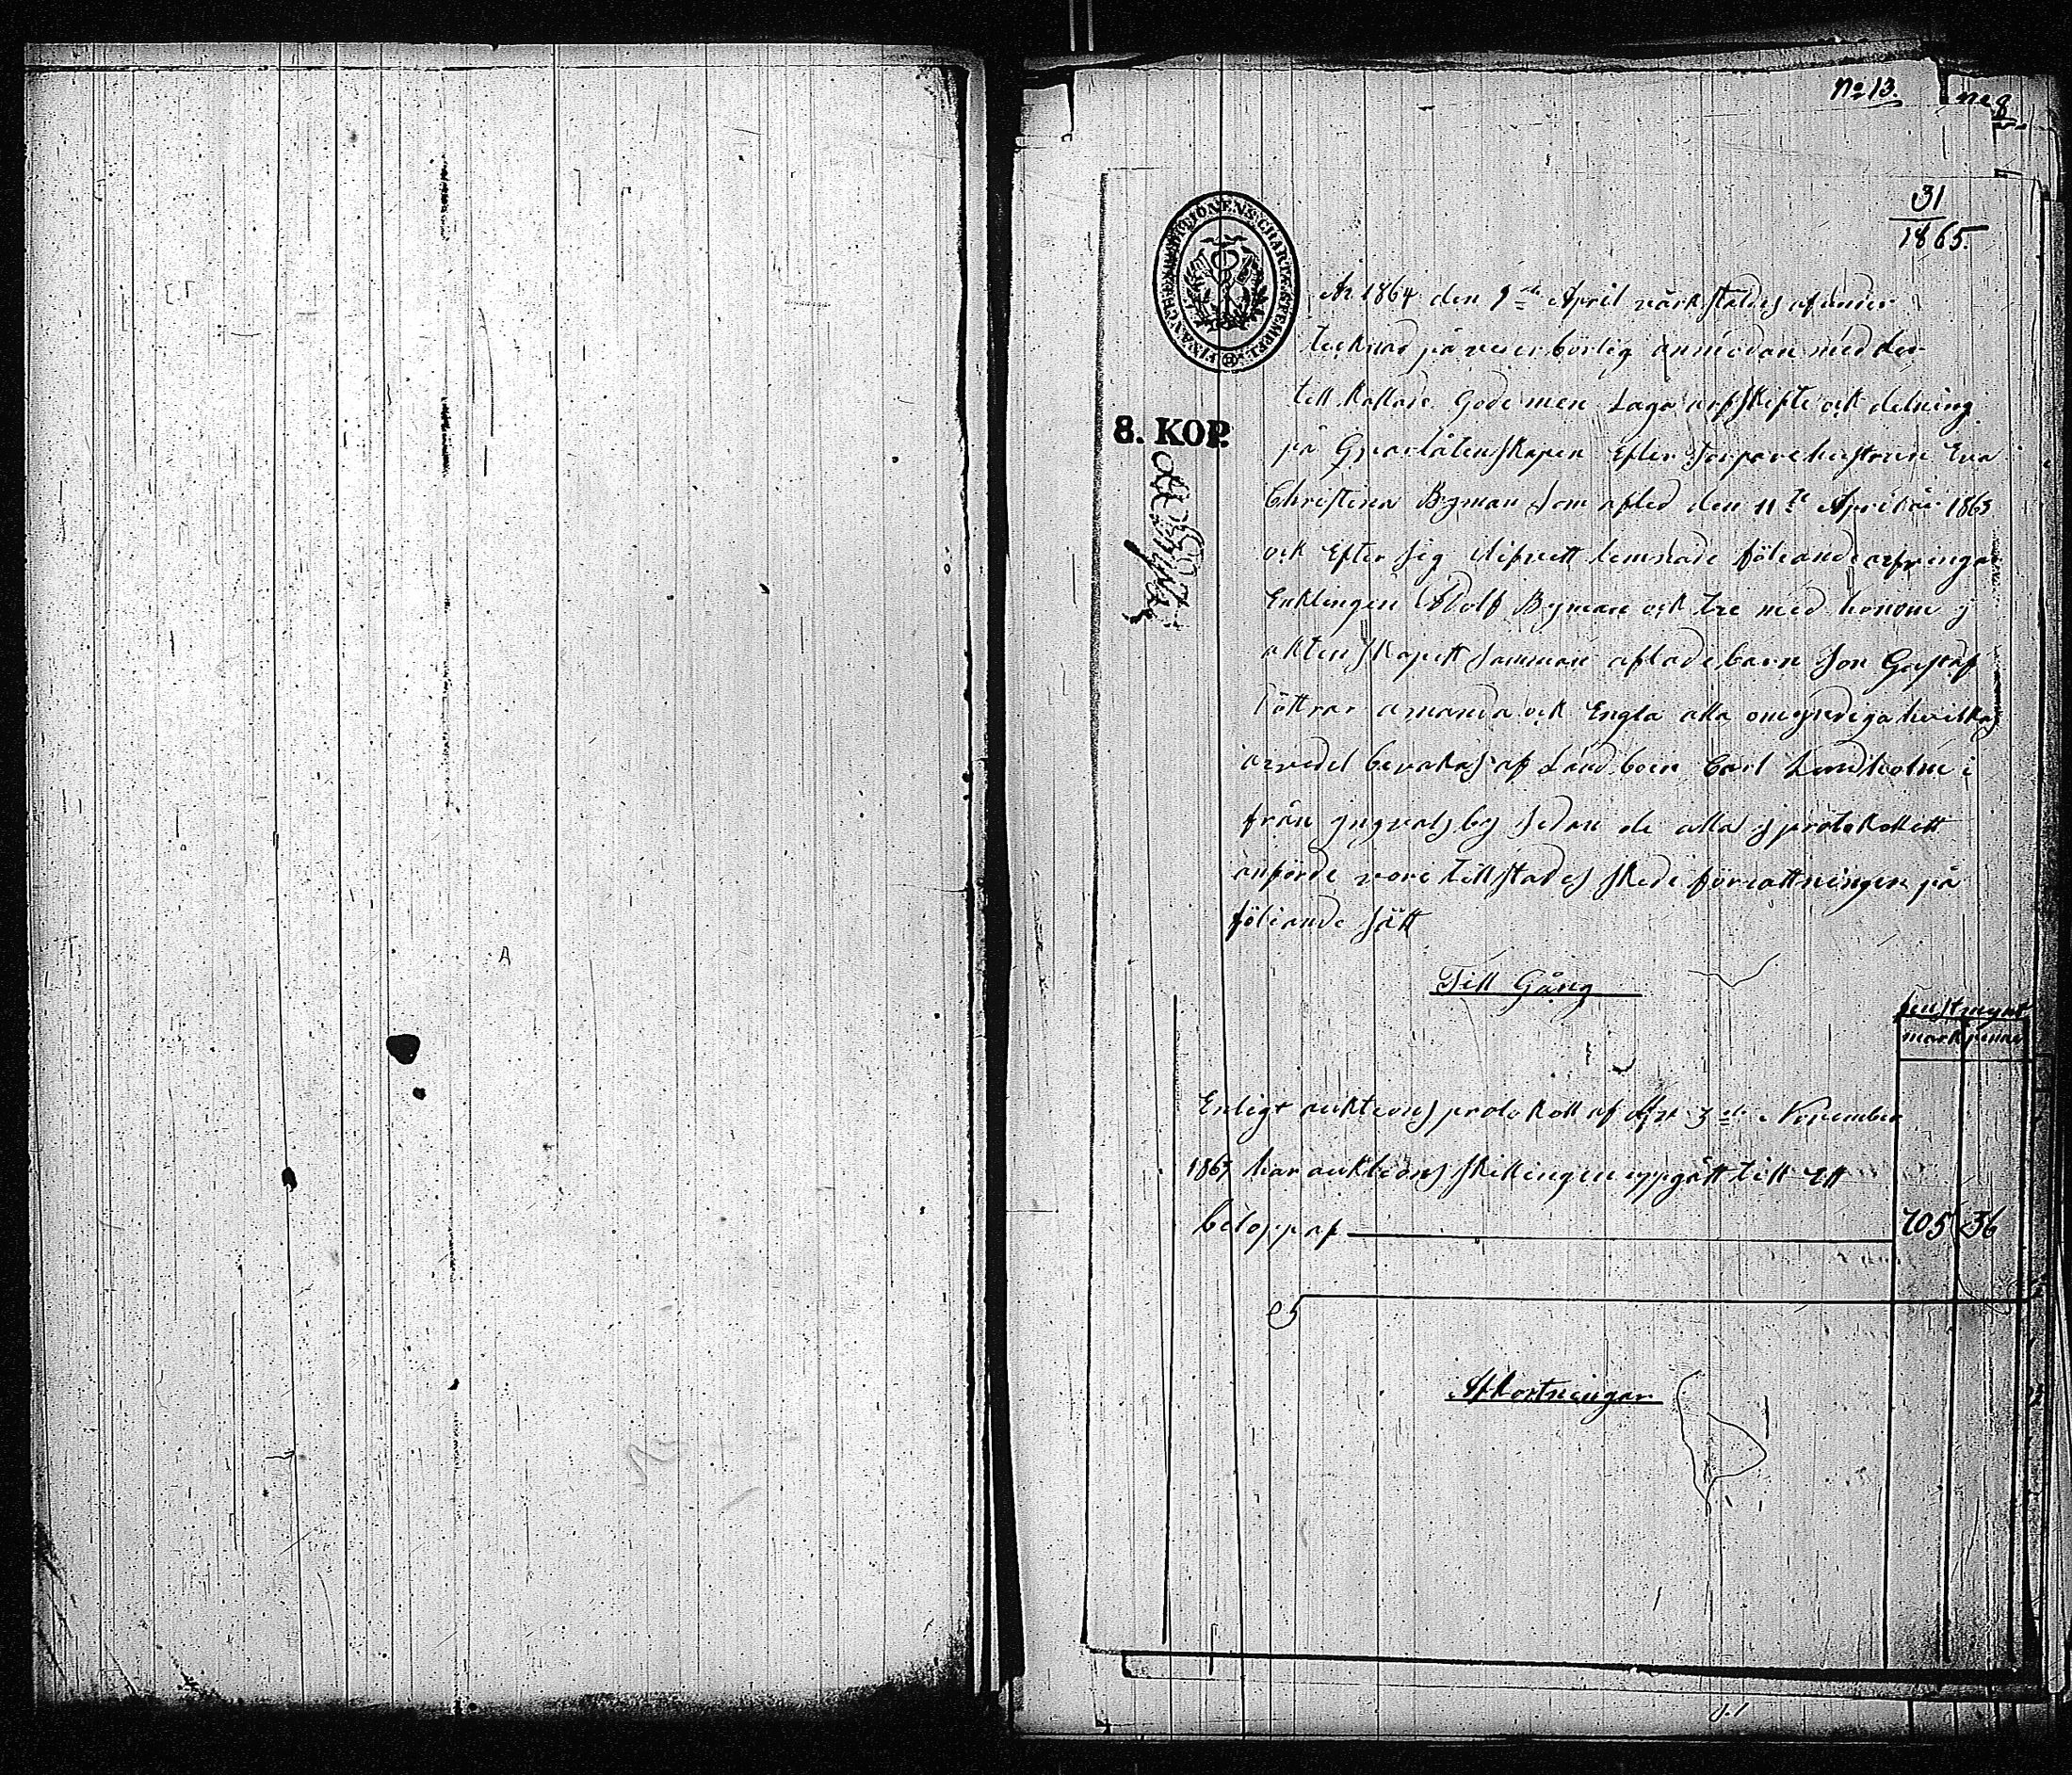 No 13.
no 8
31
1865.
FINANCE EXPEDITIONENS CHARTÆ STEMPEL
8. KOP.
År 1864 den 9de April värkstaldes af under
tecknad på vederbörlig anmodan med der
till kallade Gode men Laga arfskifte ock delning
på Qvarlåtenskapen Efter Torparehustrun Eva
Christina Byman som afled den 11te April år 1863
ock Efter sig i lifvett lemnade följande arfvingar
Enklingen Adolf Byman ock tre med honom j
äktenskapett samman aflade barn Son Gustaf
Döttrar Amanda ock Engla alla omyndiga hvilkas
arvedel bevakas af Landboen Carl Lindholm i
från yngvalsby sedan de alla j protokollett
anförde vore tillstädes skede förrättningen på
följande sätt
Till Gång
finst mynt
mark penni
Enligt auktions protokoll af den 3de November
1863 har auktions skillingen uppgått till Ett
belopp af 705 36
Afkortningar